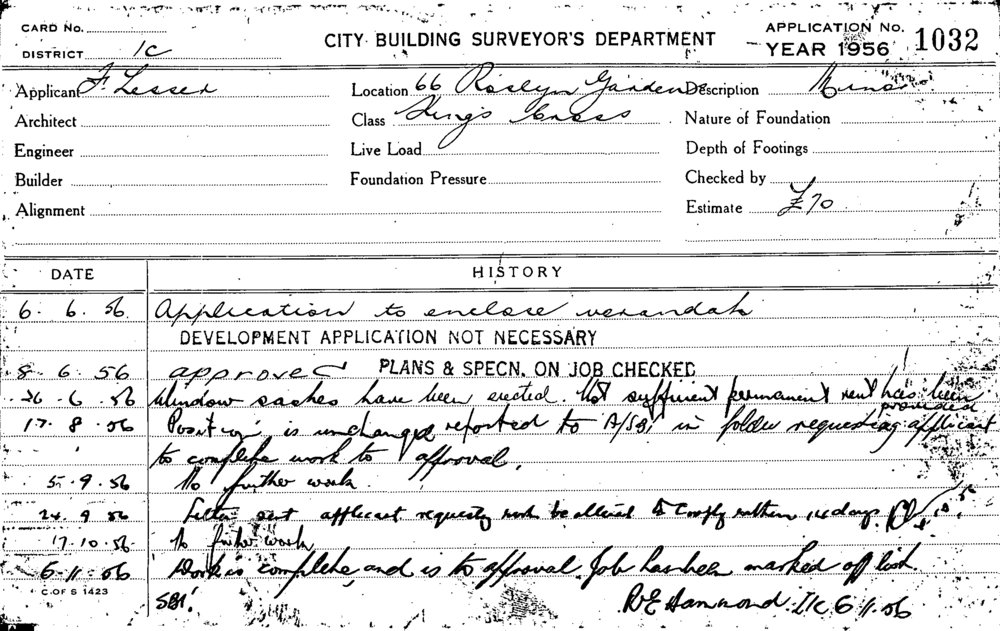 CARD No.
DISTRICT 1C
CITY BUILDING SURVEYOR'S DEPARTMENT
APPLICATION No. 1032
YEAR 1956
Applicant F. Lesser
Location 66 Roslyn Gardens
Description Minor
Architect
Class Kings Cross
Nature of Foundation
Engineer
Live Load
Depth of Footings
Builder
Foundation Pressure
Checked by
Alignment
Estimate £70
DATE HISTORY
6. 6. 56. Application to enclose verandah
DEVELOPMENT APPLICATION NOT NECESSARY
8. 6. 56 approved PLANS & SPECN. ON JOB CHECKED
26. 6. 56 Window sashes have been erected. Not sufficient permanent vent has been provided
17. 8. 56 Position is unchanged reported to A/SBI in folder requesting applicant
to complete work to approval.
5. 9. 56 No further work.
24. 9. 56 Letter sent applicant work be altered to comply within 14 days.
17. 10. 56. No further work
6. 11. 56 Work is complete and is to approval. Job has been marked off list
C. OF S 1423
SBI. R E Hammond. 1C 6 11. 56